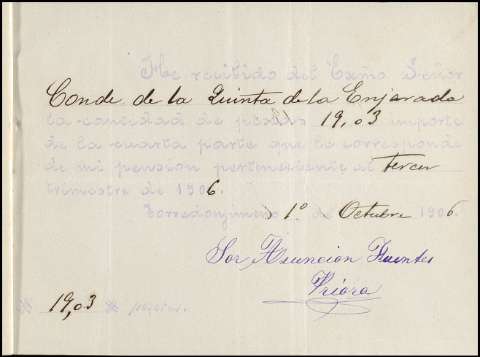 He recibido del Exmo Señor
Conde de la Quinta de la Enjarada
la cantidad de pesetas 19,03 importe
de la cuarta parte que le corresponde
de mi pension perteneciente al tercer
trimestre de 1906.
Torredonjimeno 1º de Octubre 1906.
Sor Asuncion Fuentes
Priora
19,03 pesetas.